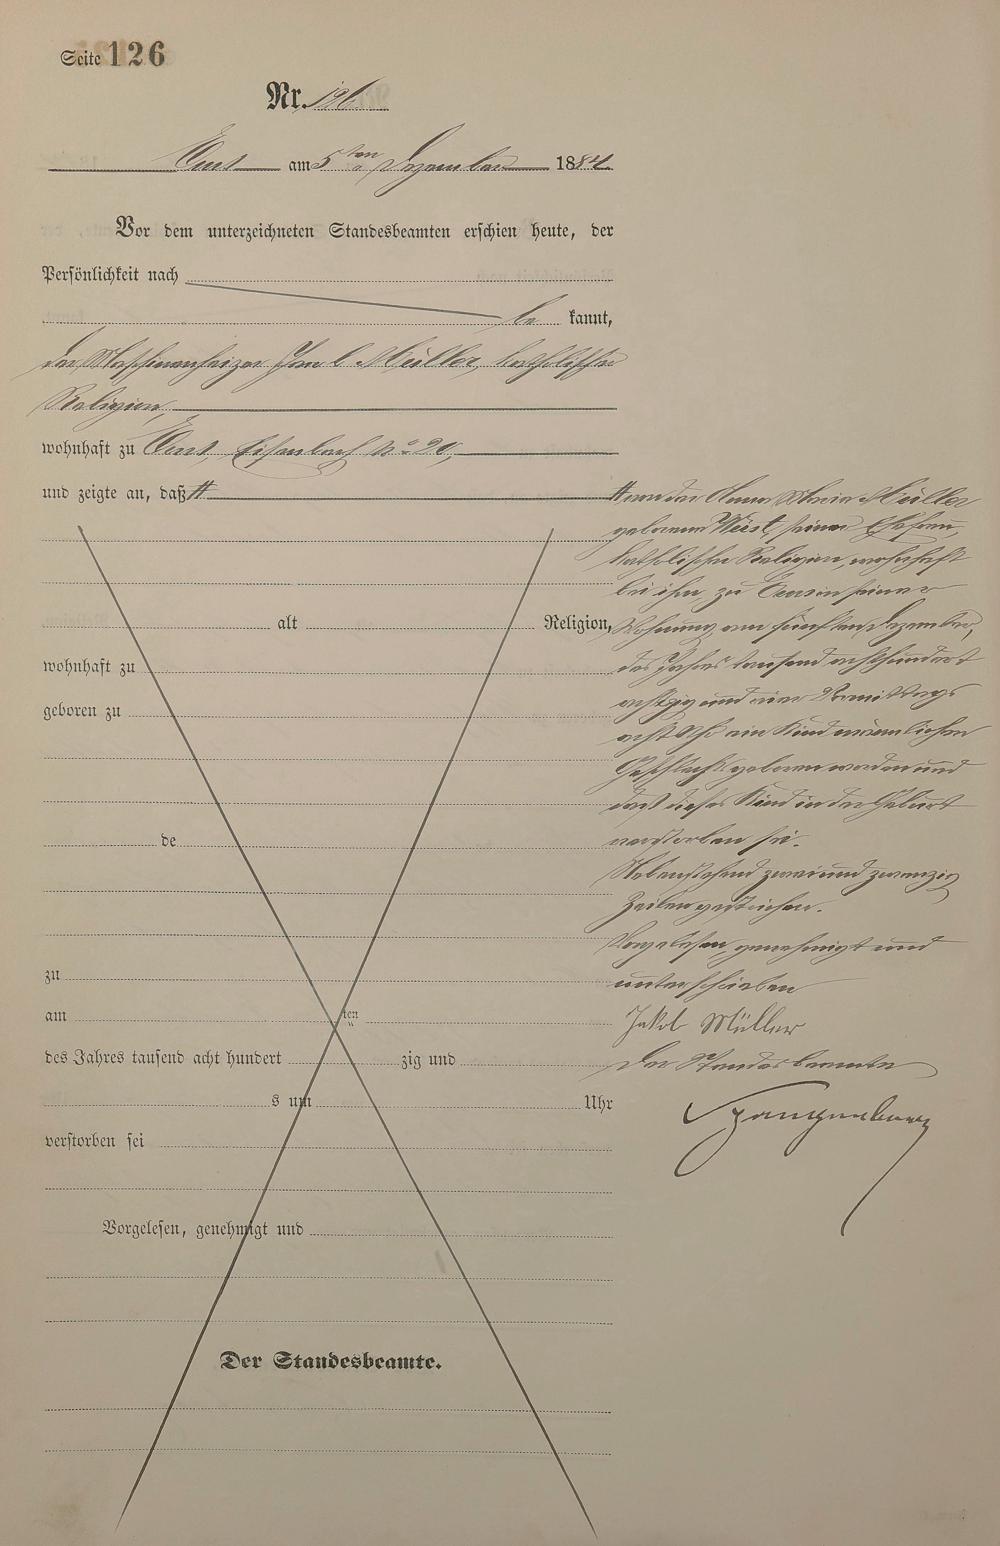 Seite 126
Nr. 126
am 5ten Dezember 1884
Vor dem unterzeichneten Standesbeamten erschien heute, der
Persönlichkeit nach
be kannt,
der Maschinenheizer Jakob Müller, katholischer
Religion,
wohnhaft zu Ems, Eisenbach No 20,
und zeigte an, daß #
# von der Anna Maria Müller
geborene Wüst, seiner Ehefrau,
katholischer Religion, wohnhaft
bei ihm, zu Ems in seiner
alt Religion,
Wohnung, am fünften Dezember,
wohnhaft zu
des Jahres tausend achthundert
geboren zu
achtzig und vier Vormittags
acht Uhr ein Kind männlichen
Geschlechts geboren worden und
daß dieses Kind in der Geburt
de
verstorben sei.
Nebenstehend zwei und zwanzig
Zeilen gestrichen.
Vorgelesen, genehmigt und
zu
unterschrieben
am ten
Jakob Müller
des Jahres tausend acht hundert zig und
Der Standesbeamte
s um Uhr
Spangenberg
verstorben sei
Vorgelesen, genehmigt und
Der Standesbeamte.